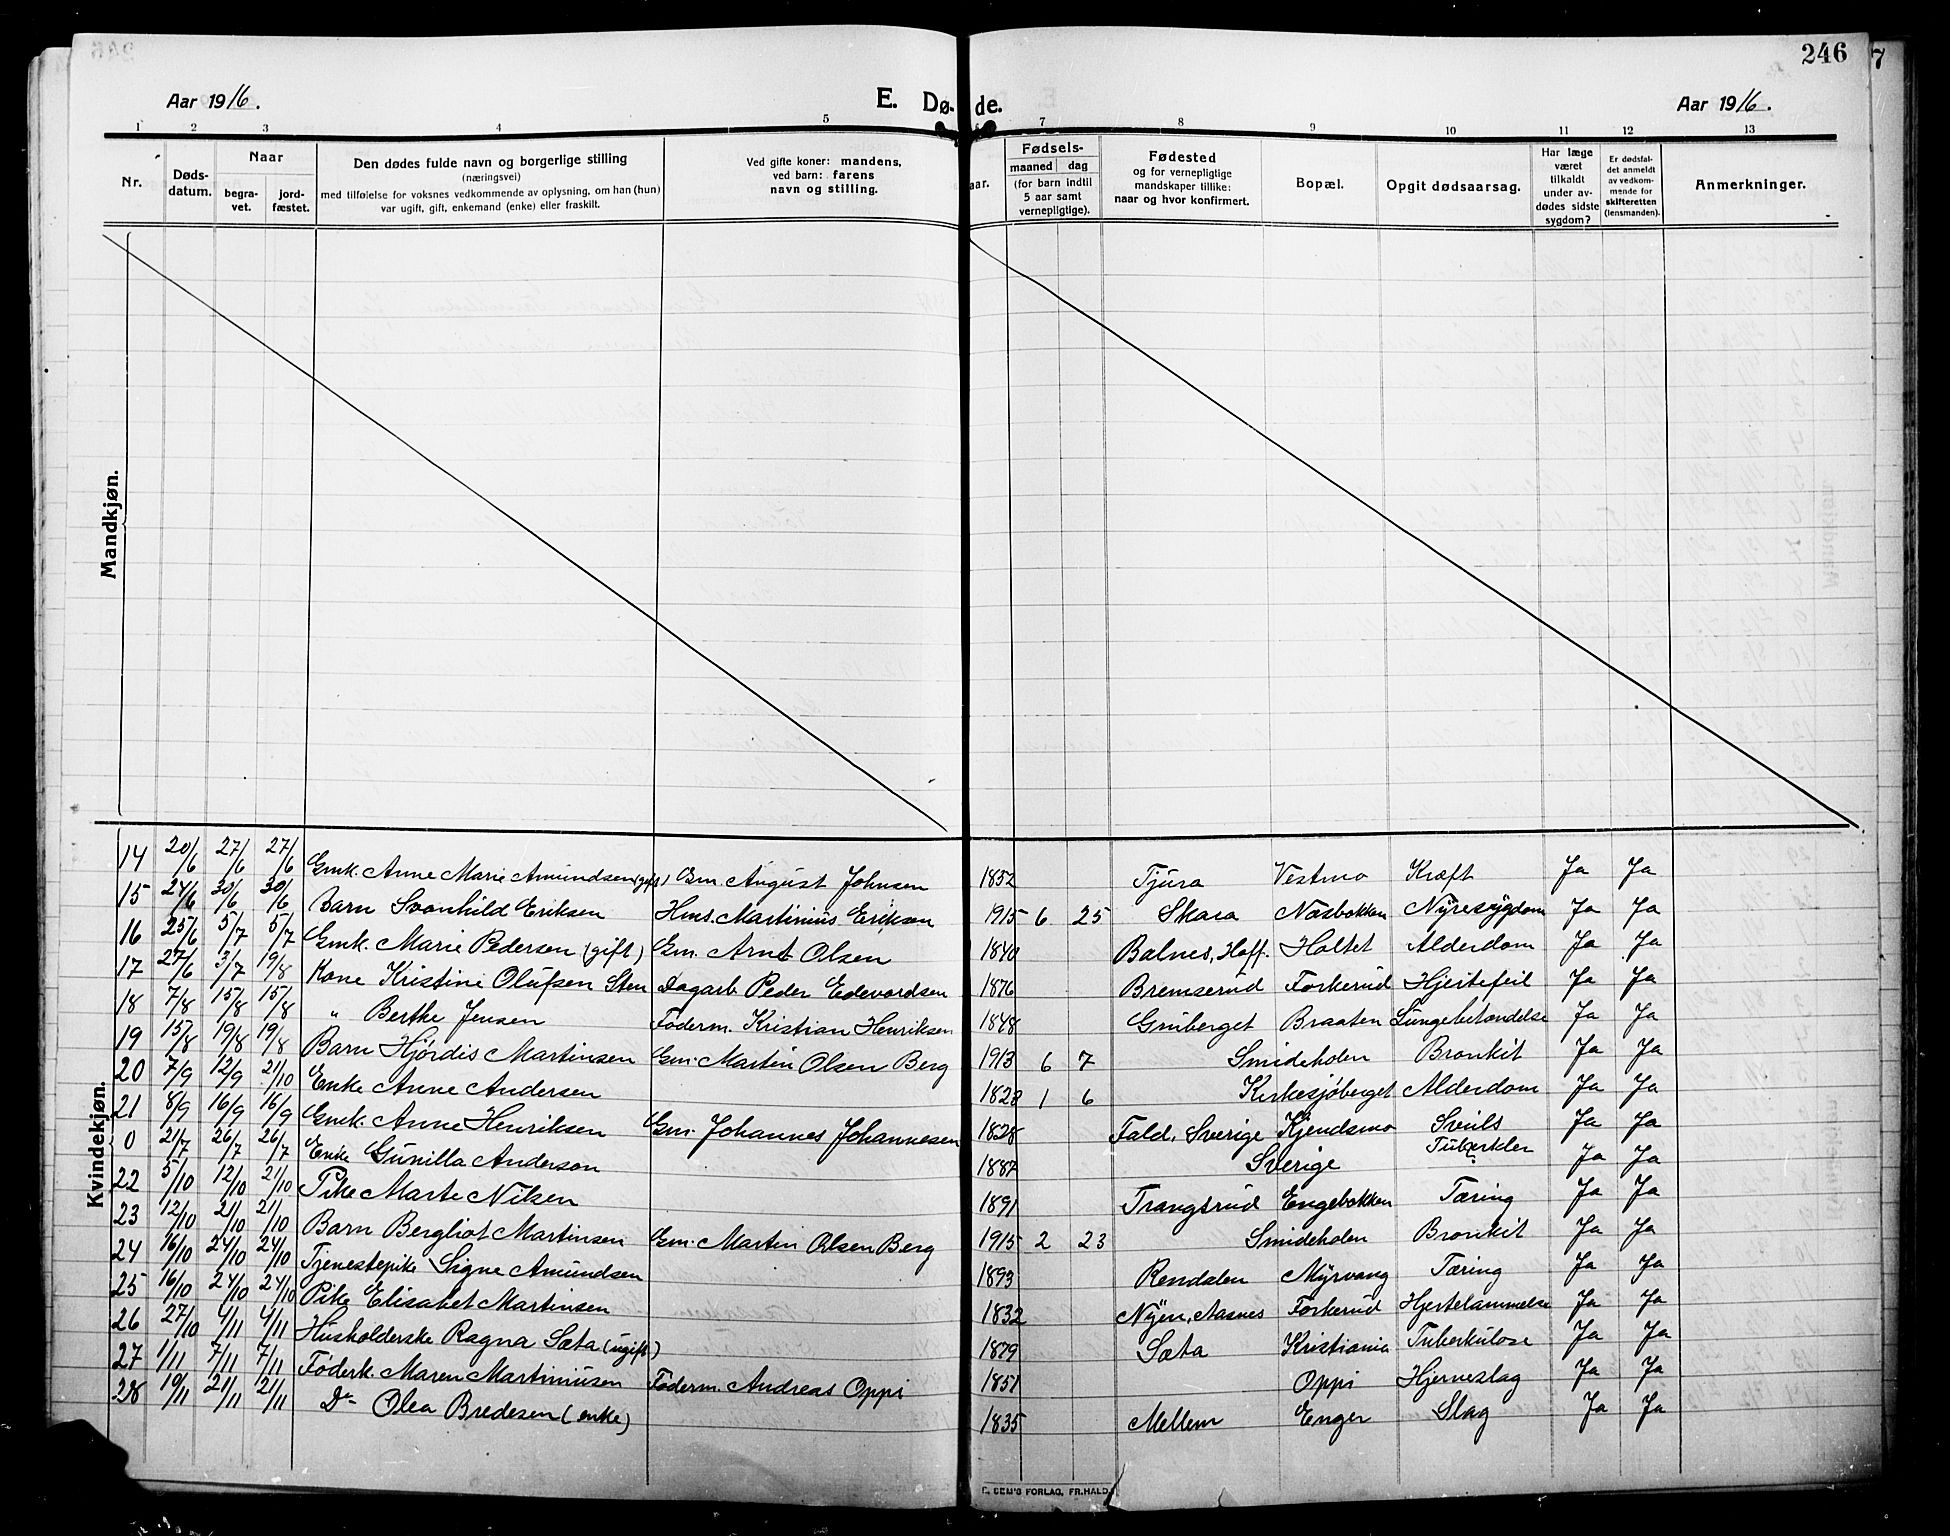 246
7
Aar 1916.
E. Dø- de.
Aar 1916.
1 2 3 4 5 6 7 8 9 10 11 12 13
Nr.
Døds-
datum.
Naar
begra-
vet.
jord-
fæstet.
Den dødes fulde navn og borgerlige stilling
(næringsvei)
med tilføielse for voksnes vedkommende av oplysning, om han (hun)
var ugift, gift, enkemand (enke) eller fraskilt.
Ved gifte koner: mandens,
ved barn: farens
navn og stilling.
aar.
Fødsels-
maaned dag
(for barn indtil
5 aar samt
vernepligtige).
Fødested
og for vernepligtige
mandskaper tillike:
naar og hvor konfirmert.
Bopæl.
Opgit dødsaarsag.
Har læge
været
tilkaldt
under av-
dødes sidste
sygdom?
Er dødsfal-
det anmeldt
av vedkom-
mende for
skifteretten
(lensmanden).
Anmerkninger.
Mandkjøn.
Kvindekjøn.
14 20/6 27/6 27/6 Gmk. Anne Marie Amundsen (gift) Gm. August Johnsen 1852 Tjura Vestmo Kræft Ja Ja
15 24/6 30/6 30/6 Barn Svanhild Eriksen Hms. Martinius Eriksen 1915 6 25 Skara Næsbakken Nyresygdom Ja Ja
16 25/6 5/7 5/7 Gmk. Marie Pedersen (gift) Gm. Arnt Olsen 1840 Balnes, Hoff. Holtet Alderdom Ja Ja
17 27/6 3/7 19/8 Kone Kristine Olufsen Sten Dagarb. Peder Edevardsen 1876 Bremserud Forkerud Hjertefeil Ja Ja
18 7/8 15/8 15/8 " Berthe Jensen Føderm. Kristian Henriksen 1848 Gruberget Braaten Lungebetændelse Ja Ja
19 15/8 19/8 19/8 Barn Hjørdis Martinsen Gm. Martin Olsen Berg 1913 6 7 Smideholen Bronkit Ja Ja
20 7/9 12/9 21/10 Enke Anne Andersen 1828 1 6 Kirkesjøberget Alderdom Ja Ja
21 8/9 16/9 16/9 Gmk. Anne Henriksen Gm. Johannes Johannesen 1828 Fald, Sverige Kjendsmo Senils Ja Ja
0 21/7 26/7 26/7 Enke Gunilla Anderson 1887 Sverige Tuberkler Ja Ja
22 5/10 12/10 21/10 Pike Marte Nilsen 1891 Trangsrud Engebakken Tæring Ja Ja
23 12/10 21/10 21/10 Barn Bergliot Martinsen Gm. Martin Olsen Berg 1915 2 23 Smideholen Bronkit Ja Ja
24 16/10 24/10 24/10 Tjenestepike Signe Amundsen 1893 Rendalen Myrvang Tæring Ja Ja
25 16/10 24/10 24/10 Pike Elisabet Martinsen 1832 Nyen, Aasnes Forkerud Hjertelammelse Ja Ja
26 27/10 4/11 4/11 Husholderske Ragna Sæta (ugift) 1879 Sæta Kristiania Tuberkulose Ja Ja
27 1/11 7/11 7/11 Føderk. Maren Martiniusen Føderm. Andreas Oppi 1851 Oppi Hjerneslag Ja Ja
28 19/11 21/11 21/11 Do Olea Bredesen (enke) 1835 Mellem Enger Slag Ja Ja
SEM'S FORLAG, FR.HALD.